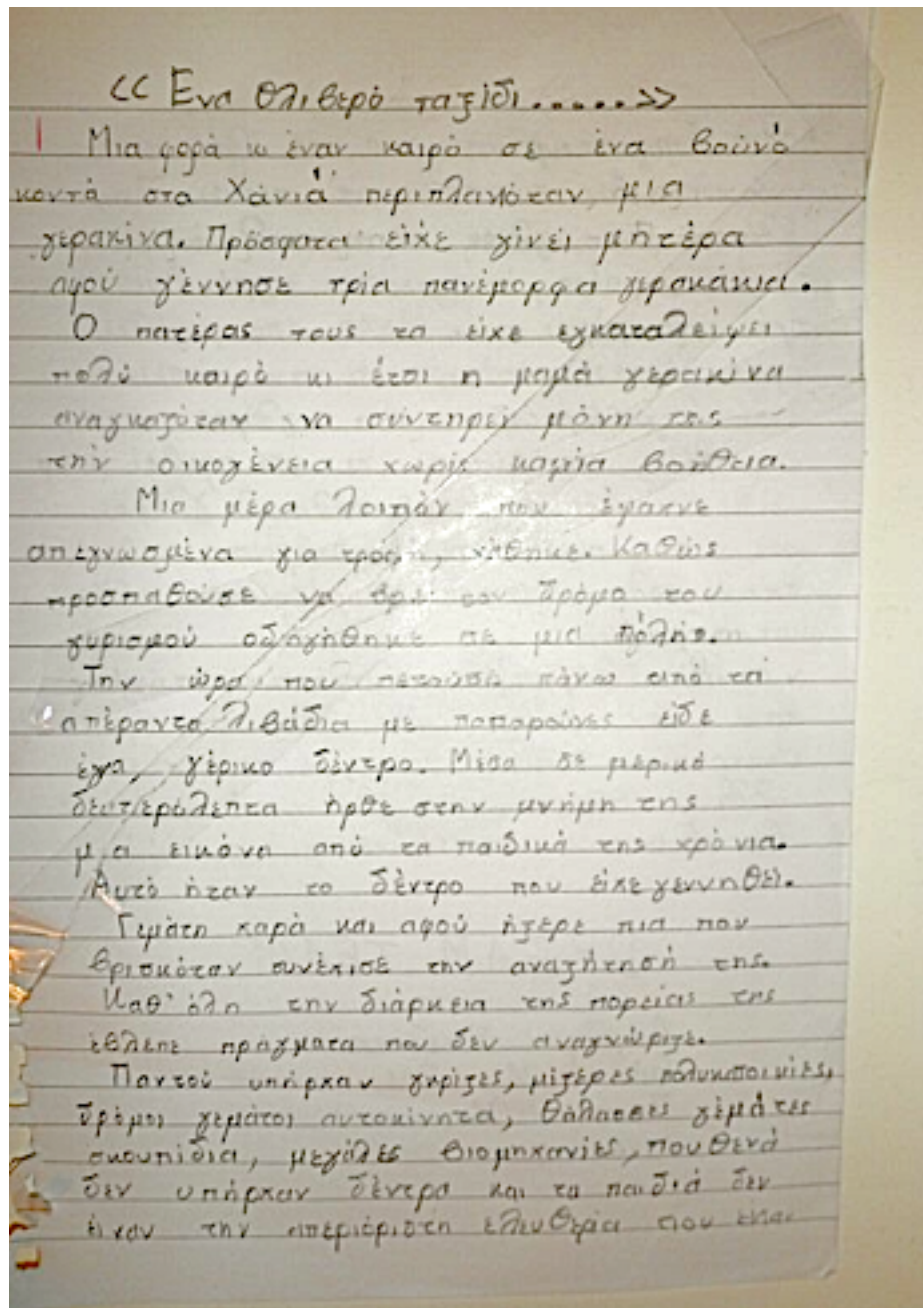 << Ενα θλιβερό ταξίδι.....>>
Μια φορά κι έναν καιρό σε ένα βουνό
κοντά στα Χάνιά περιπλανιόταν μια
γερακίνα. Πρόσφατα είχε γίνει μητέρα
αφού γέννησε τρία πανέμορφα γερακάκια.
Ο πατέρας τους τα είχε εγκαταλείψει
πολύ καιρό κι έτσι η μαμά γερακίνα
αναγκαζόταν να συντηρεί μόνη της
την οικογένεια χωρίς καμία βοήθεια.
Μια μέρα λοιπόν, που έψαχνε
απεγνωσμένα για τροφή, χάθηκε. Καθώς
προσπαθούσε να βρει τον δρόμο του
γυρισμού οδηγήθηκε σε μια πόλη.
Την ώρα που πετούσε πάνω από τα
απέραντα λιβάδια με παπαρούνες είδε
ένα γέρικο δέντρο. Μέσα σε μερικά
δευτερόλεπτα ήρθε στην μνήμη της
μια εικόνα από τα παιδικά της χρόνια.
Αυτό ήταν το δέντρο που είχε γεννηθεί.
Γεμάτη χαρά και αφού ήξερε πια που
βρισκόταν συνέχισε την αναζήτησή της.
Καθ' όλη την διάρκεια της πορείας της
έβλεπε πράγματα που δεν αναγνώριζε.
Παντού υπήρχαν γκρίζες, μίζερες πολυκατοικίες,
δρόμοι γεμάτοι αυτοκίνητα, θάλασσες γεμάτες
σκουπίδια, μεγάλες βιομηχανίες, πουθενά
δεν υπήρχαν δέντρα και τα παιδιά δεν
είχαν την απεριόριστη ελευθερία που